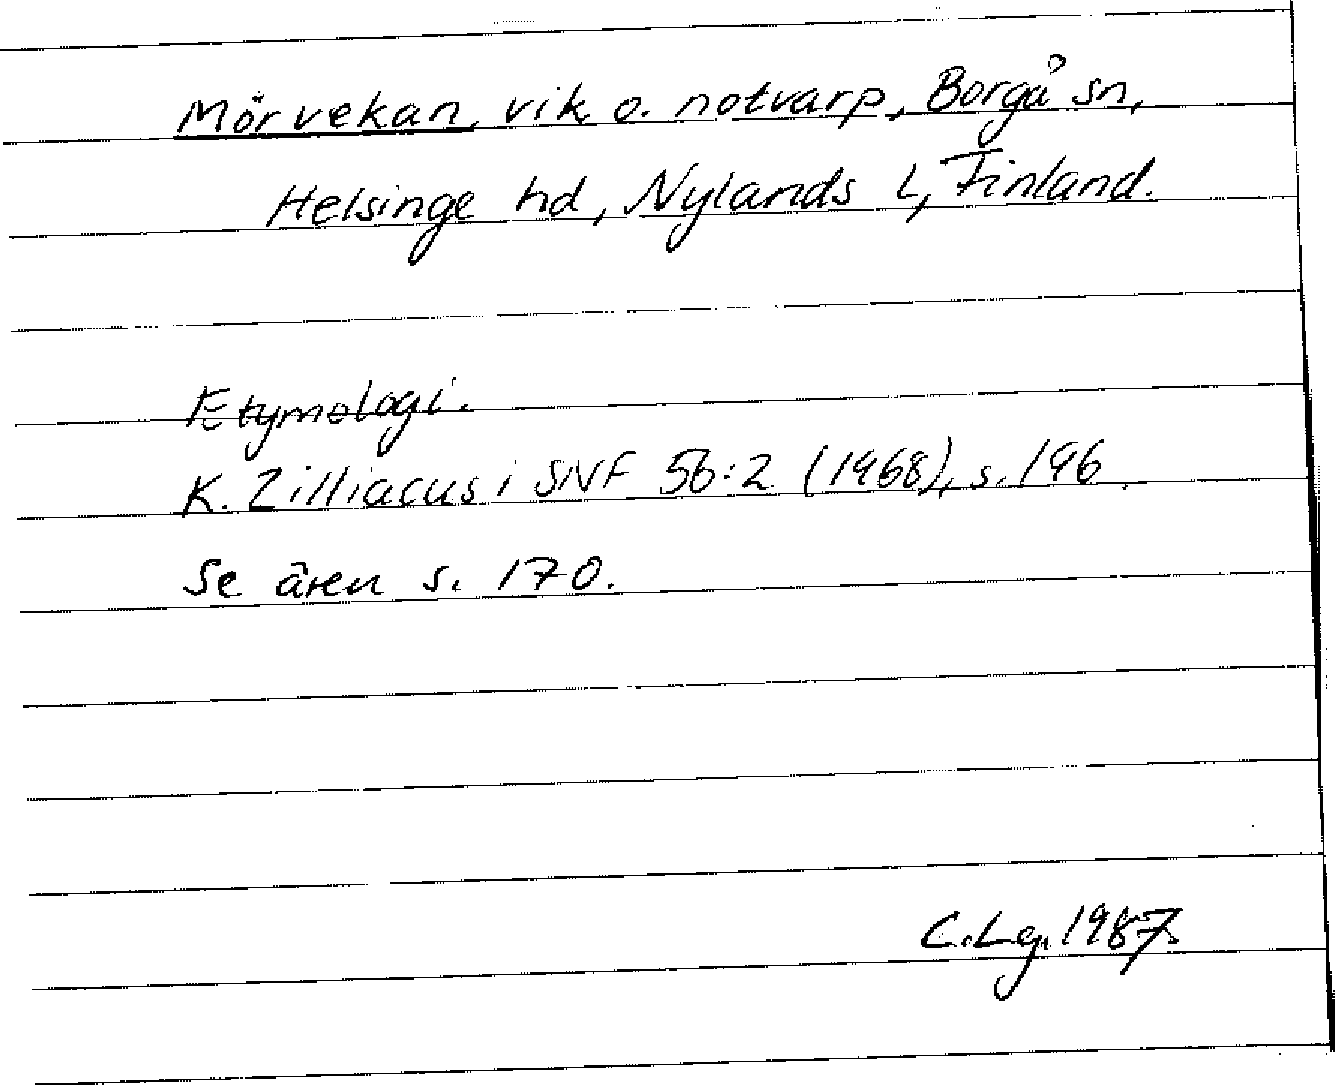 Mörvekan, vik o. notvarp, Borgå sn,
Helsinge hd, Nylands l, Finland.
Etymologi.
K. Zilliacus i SNF 56:2 (1968), s. 196.
Se även s. 170.
C.Lg. 1987.